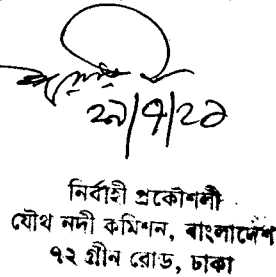 ২৯/৭/২১
নির্বাহী প্রকৌশলী
যৌথ নদী কমিশন, বাংলাদেশ
৭২ গ্রীন রোড, ঢাকা